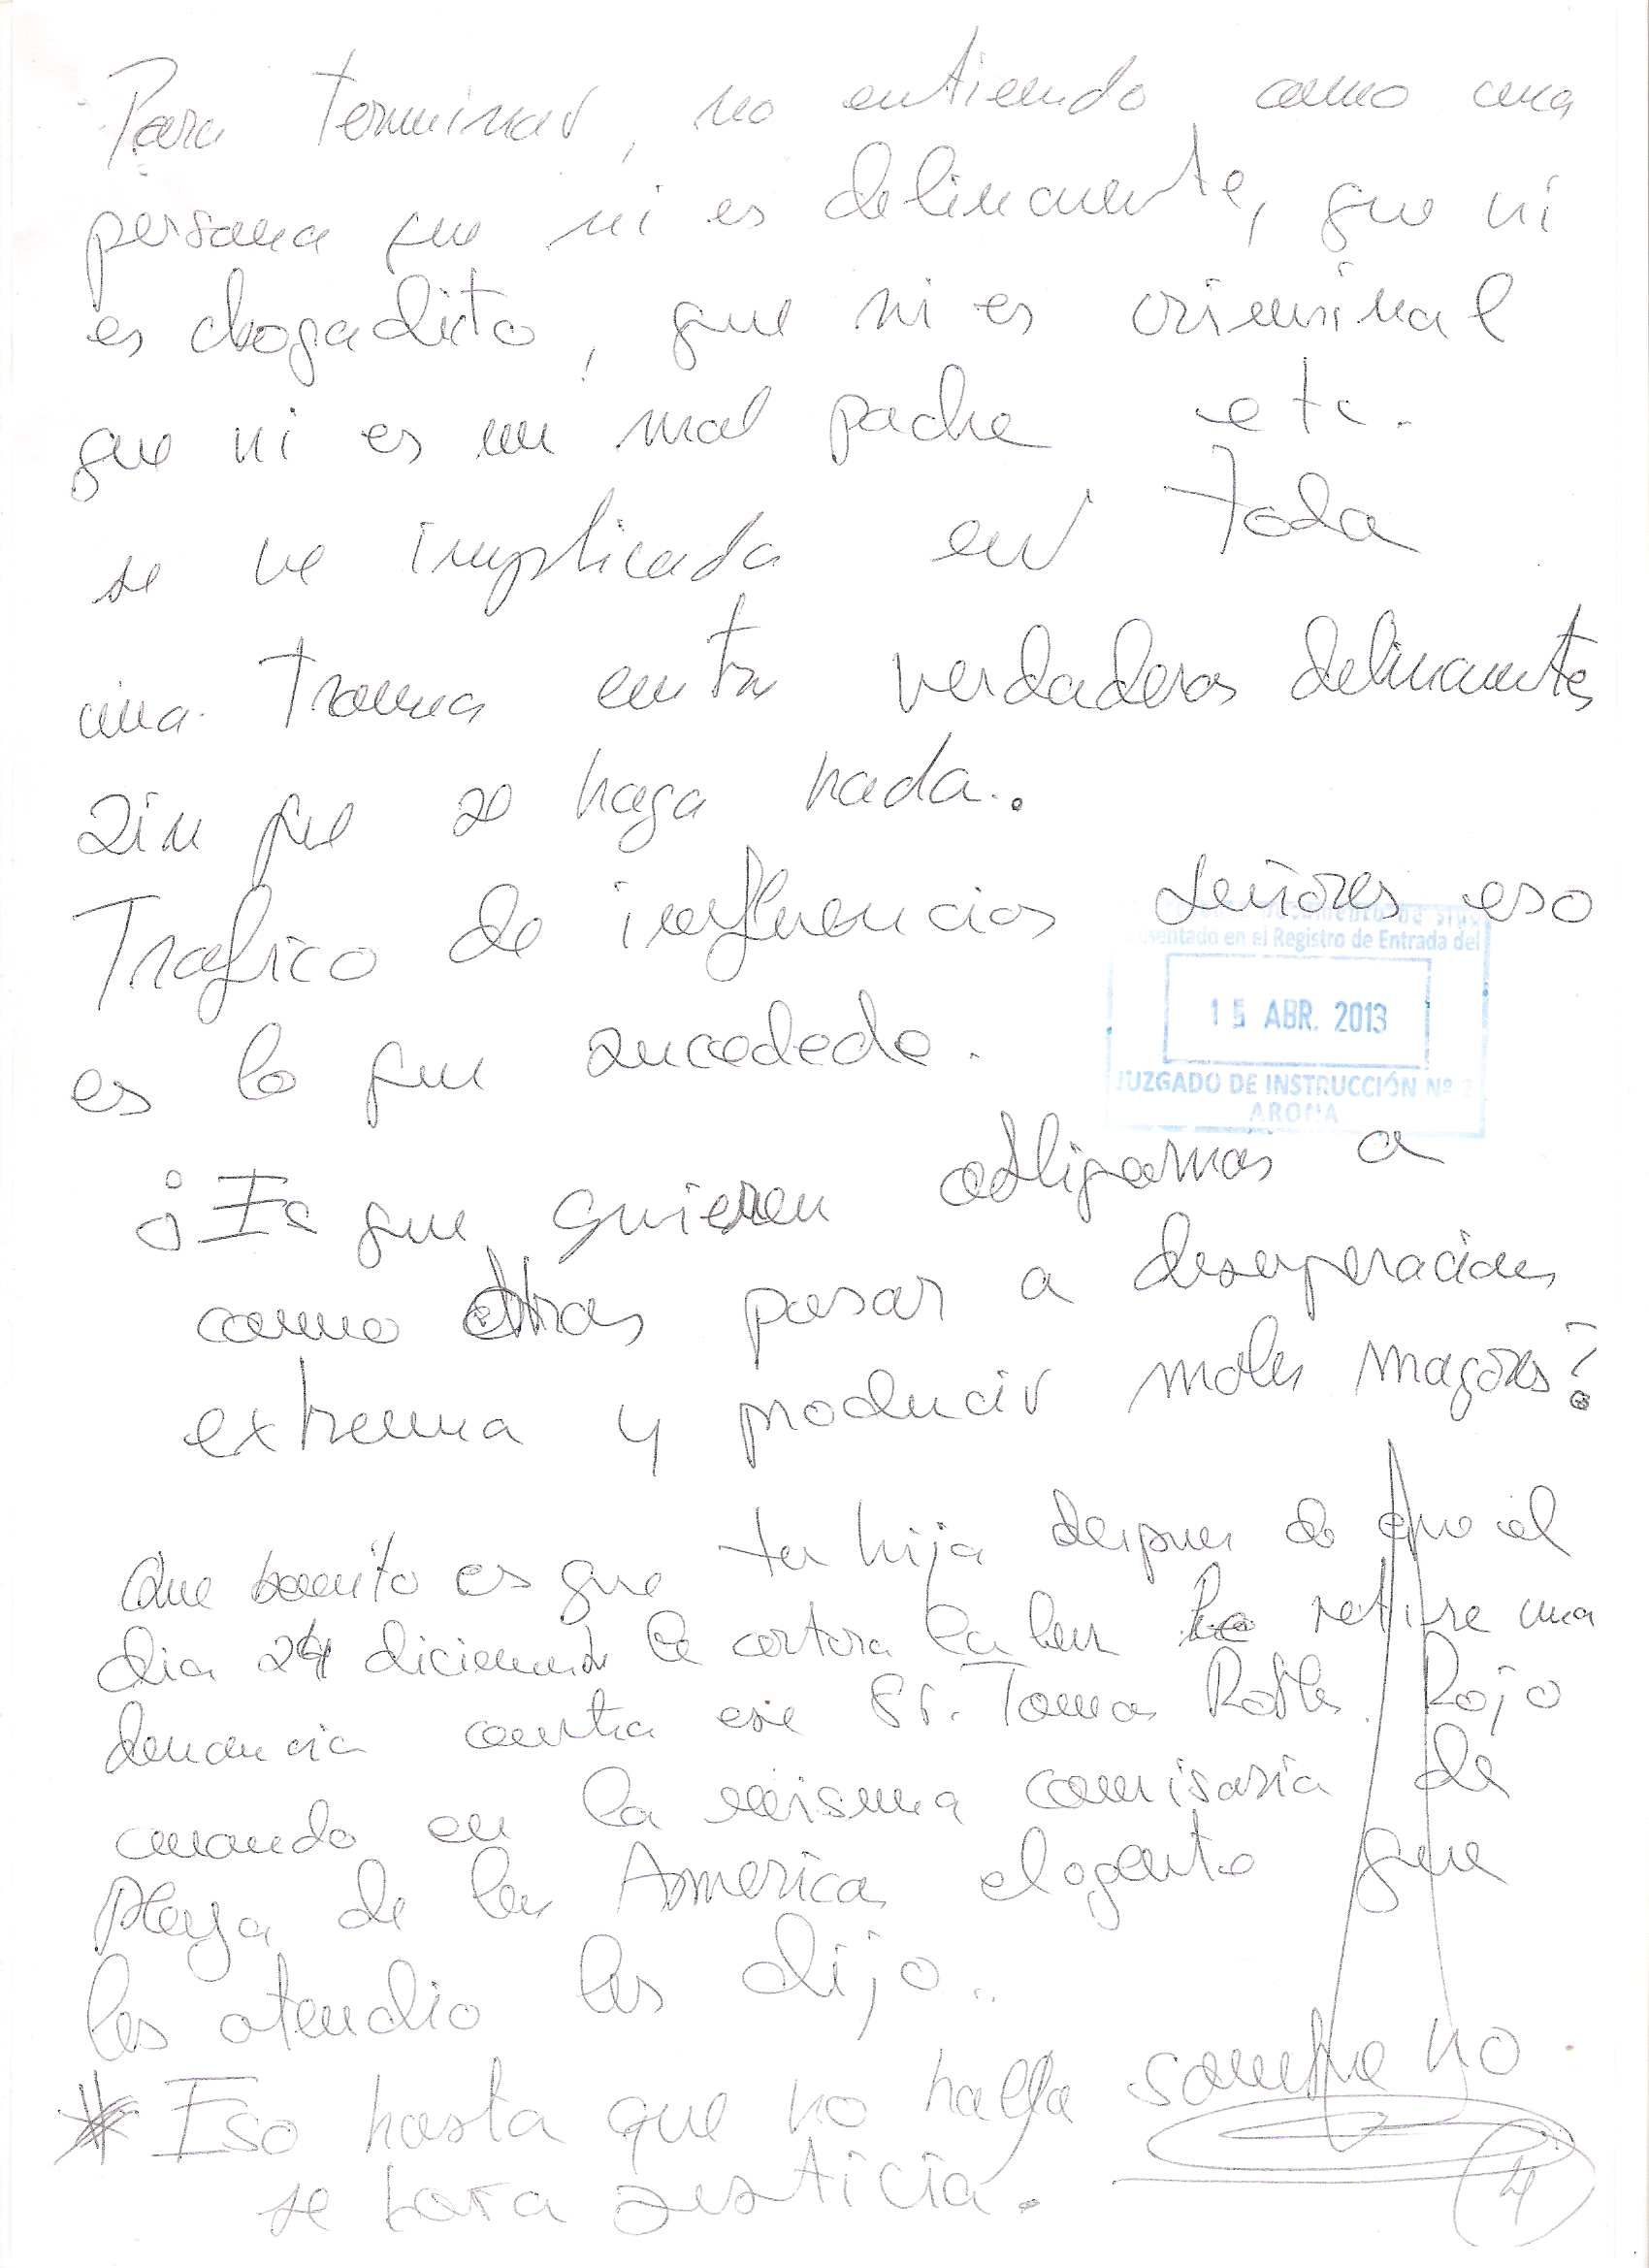 Para terminar, no entiendo como una
persona que ni es delincuente, que ni
es drogadicto, que ni es criminal
que ni es un mal padre etc.
se ve implicada en toda
una trama entre verdaderos delincuentes
sin que se haga nada..
Trafico de influencias señores eso
presentado en el Registro de Entrada del
15 ABR. 2013
JUZGADO DE INSTRUCCIÓN Nº 2
ARONA
es lo que sucedede.
¿Es que quieren obligarnos a
como otros pasar a desesperacion
extrema y producir males mayores?
Que bonito es que tu hija despues de que el
dia 24 diciembre le cortara la luz le retire una
denuncia contra ese Sr. Tomas Robles Rojo
cuando en la misma comisaria de
Playa de las Americas el agente que
les atendio les dijo..
* Eso hasta que no halla sangre no
se hara justicia.
4